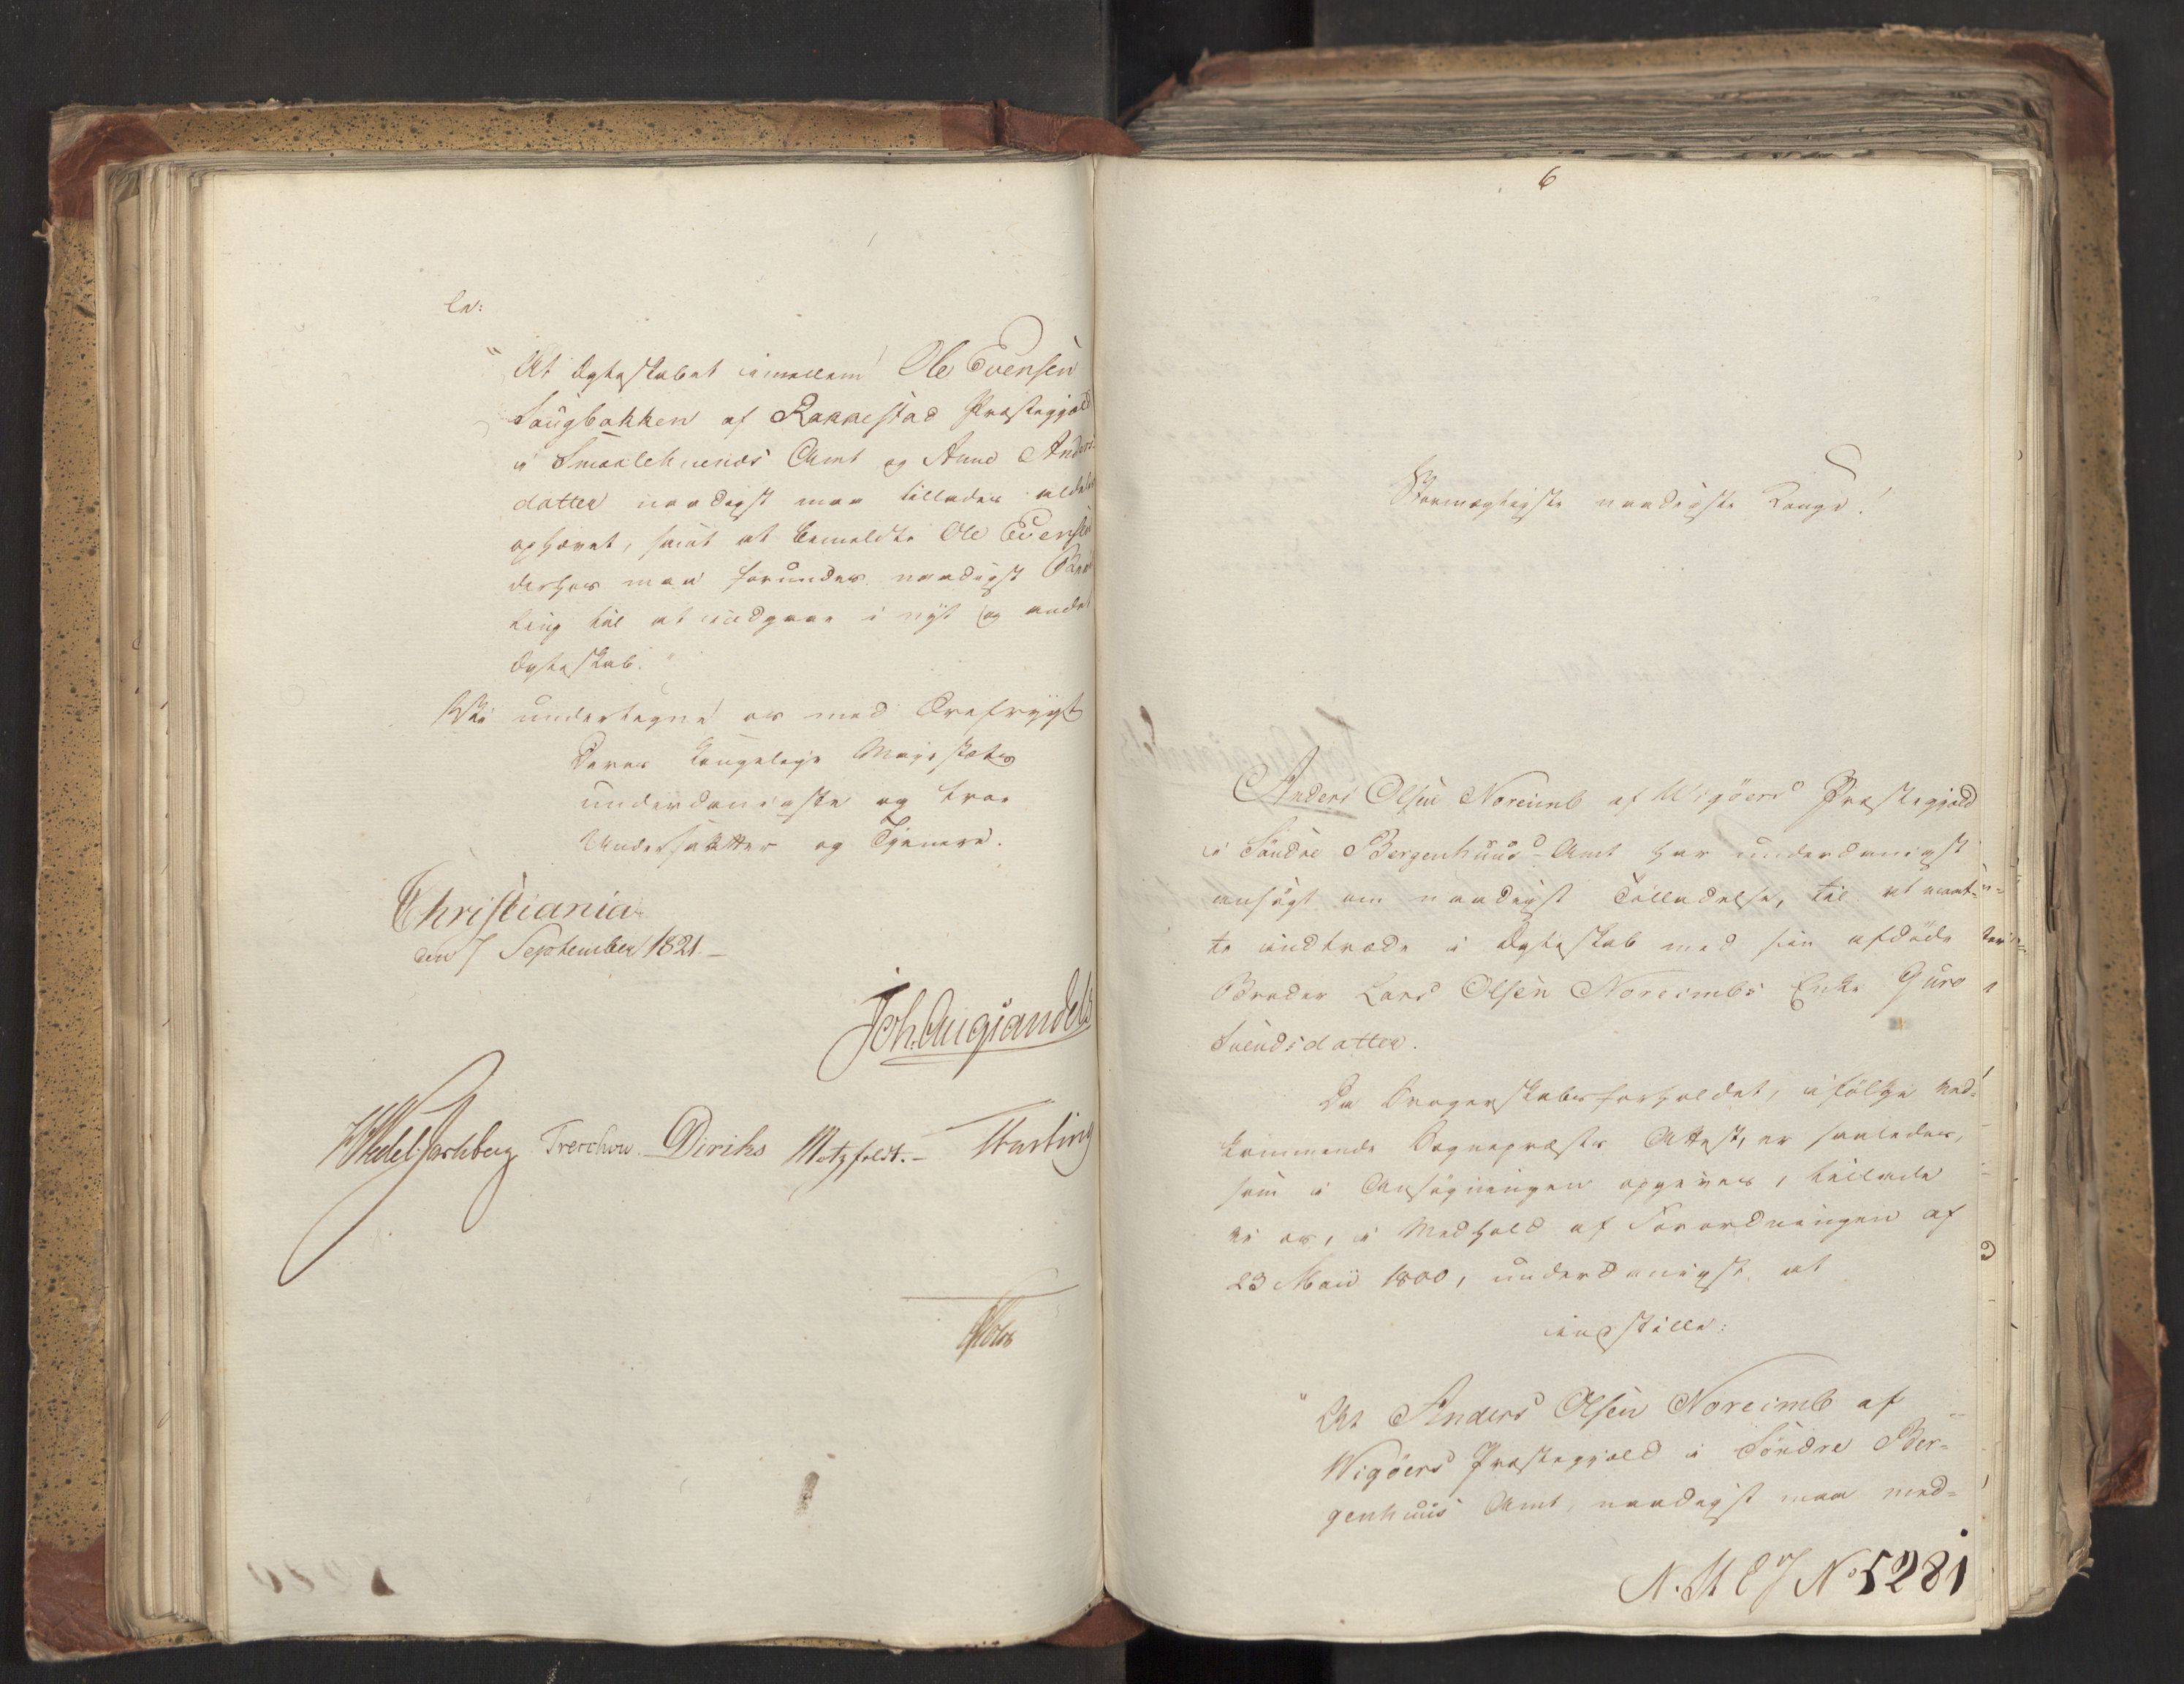 le:
"At Ægteskabet imellem Ole Evensen
Saugbakken af Rakkestad Præstegjæld
i Smaalehnenes Amt og Anne Anders-
datter naadigst maa tillades aldeles
ophævet, samt at bemeldte Ole Evensen
derhos maa forundes naadigst Bevil
ling til at indgaae i nyt og andet
Ægteskab."
Vi undertegne os med Ærefrygt
Deres Kongelige Majestæts
underdanigste og troe
Undersaatter og Tjenere.
Christiania
den 7 September 1821.
Joh. Aug. Sandels
Wedel Jarlsberg Treschow. Diriks Motzfeldt. Fasting
Holst
6
Stormægtigste naadigste Konge!
Anders Olsen Noreimb af Wigöers Præstegjæld
i Söndre Bergenhuus Amt har underdanigst
ansögt om naadigst Tilladelse, til at maat-
te indtræde i Ægteskab med sin afdöde
Broder Lars Olsen Noreimbs Enke Guro
Svendsdatter.
Da Svogerskabsforholdet, ifölge ved-
kommende Sognepræsts Attest, er saaledes,
som i Ansögningen opgives, tillade
vi os, i Medhold af Forordningen af
23 Maii 1800, underdanigst at
indstille:
"At Anders Olsen Noreimb af
Wigöers Præstegjæld i Söndre Ber-
genhuus Amt, naadigst maa med-
No 5281